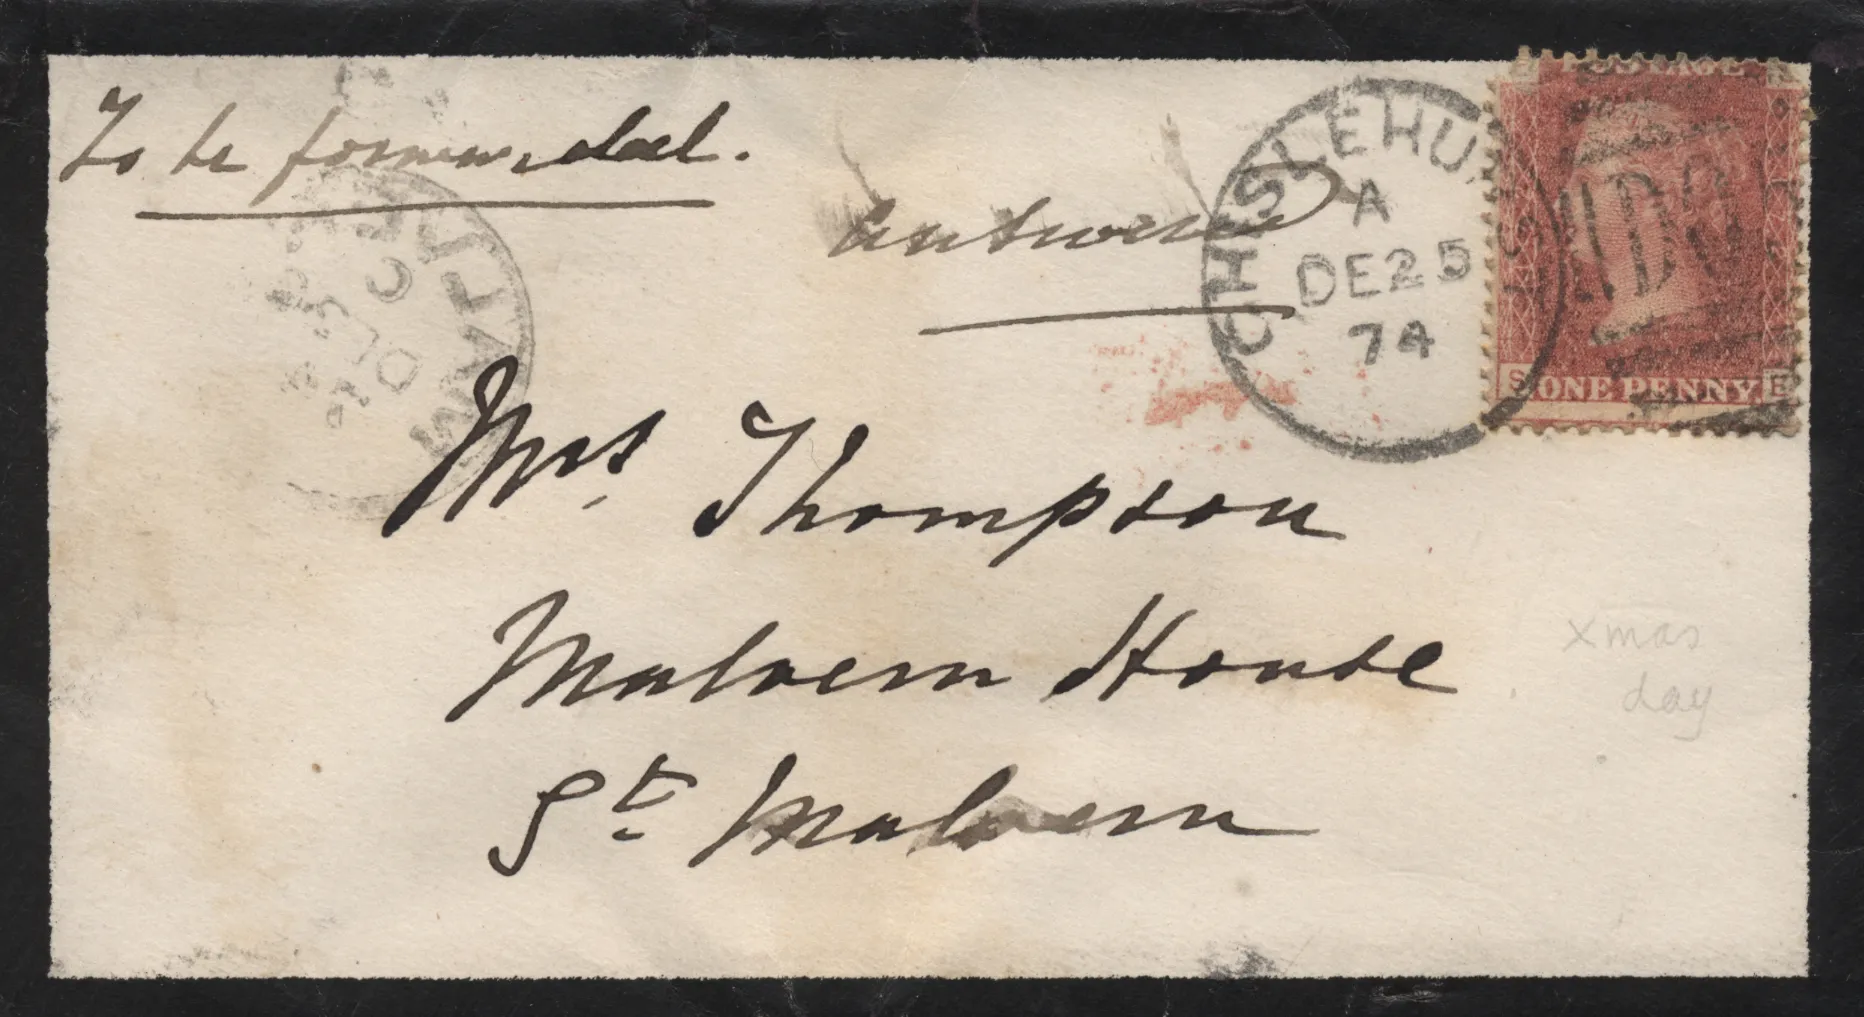 To be forwarded.
Answered
CHISLEHURST
A
DE 25
74
POSTAGE
S ONE PENNY E
MALV
C
Mrs Thompson
Malvern House
Gt. Malvern
xmas
day